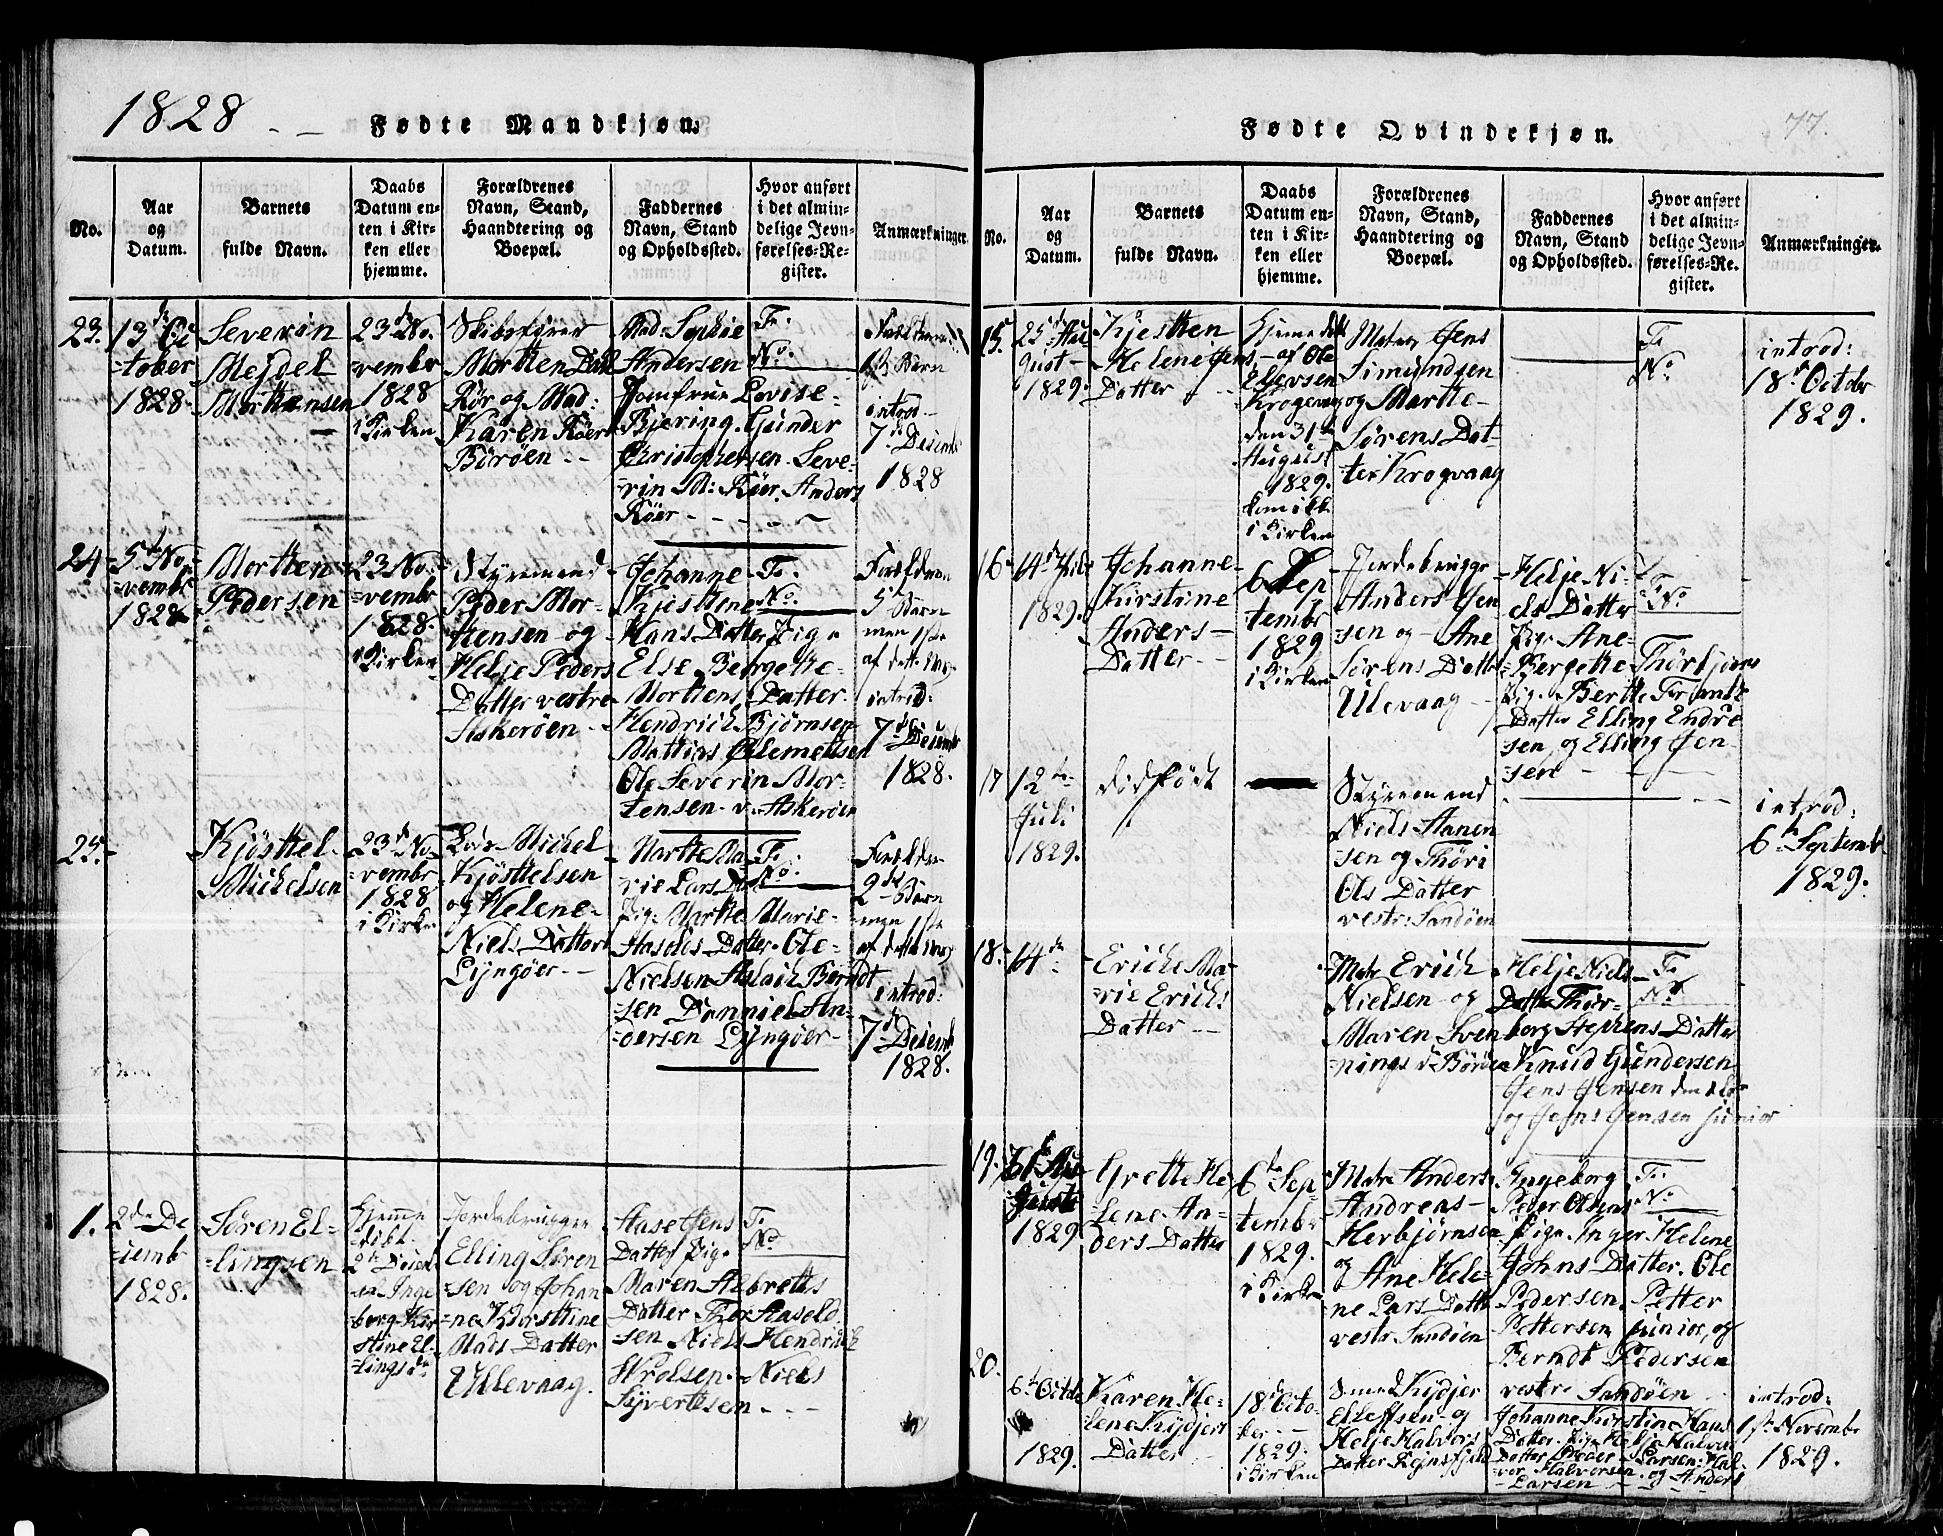 1828 - -
Fødte Mandkjøn.
No.
Aar
og
Datum.
Barnets
fulde Navn.
Daabs
Datum en-
ten i Kir-
ken eller
hjemme.
Forældrenes
Navn, Stand,
Haandtering og
Boepæl.
Faddernes
Navn, Stand
og Opholdssted.
Hvor anført
i det almin-
delige Jevn-
førelses-Re-
gister.
Anmærkninger.
23.
13de Oc
-tober
1828.
Severin
Mejdel
Morttensen
23de No.
-vembr
1828
i Kirken
Skibsfører
Mortten Dahl
Röer og Mad:
Karen Röer
Boröen - -
Mad: Sophie
Andersen
Jomfrue Lovise
Bjering. Gunder
Christophersen. Seve-
rin M: Röer. Anders
Röer - - - -
F:
No.
Barn
introd -
7de Decemb
1828
24
5te No
=vembr
1828
Mortten
Pedersen
23 No.
=vembr
1828.
i Kirken
Styrmand
Peder Mor-
tensen og
Helje Peders
Datter vestre
Askeröen -
Johanne
Kjesttene
Hans Datter Pige
Else Bergette
Morttens Datter
Hendrich Björnsen
Mattias Clemetsen
Ole Severin Mor-
tensen v. Askeröer
F:
No.
Forældrene
5 Barn
men 1ste
af dette
introd:
7de Decemb
1828.
25.
Kjösttel
Michelsen
23de No-
=vembr
1828
i Kirken
Lods Michel
Kjösttelsen
og Helene
Niels Datter
Lyngöer - -
Martte Ma
rie Lars Datt
Pig. Martte Marie
Aasolds Datter. Ole
Nielsen Aslach Berndt
=sen Danniel An-
=dersen Lyngöer -
F:
No.
Foreldre
2det Barn
men 1ste
af dette
introd:
7de Decemb
1828.
1.
2den De
=cemb
1828.
Sören El-
=lingsen
Hjemme
döbt
2de Decem
Inge
borg Kir
stine El-
=lingsda
Jordebrugger
Elling Sören
=sen og Johan
ne Kirsttine
Mads Datter
Ullevaag.
Aase Jens
Datter Pige
Maren Albretts
Datter Thor Aasold
sen Niels Hendrich
Nrolsen. Niels
Syvertsen - - -
F:
No.

Fødte Qvindekjøn.
77.
No.
Aar
og
Datum.
Barnets
fulde Navn.
Daabs
Datum en-
ten i Kir-
ken eller
hjemme.
Forældrenes
Navn, Stand,
Haandtering og
Boepæl.
Faddernes
Navn, Stand
og Opholdssted.
Hvor anført
i det almin-
delige Jevn-
førelses-Re-
gister.
Anmærkninger.
15.
25de Au
gust -
1829.
Kjestten
Helene Jens
Datter
Hjemedöbt
- af Ole
Elevsen
Krogevag
den 31te
August
1829.
kom ikke
i Kirken
Matros Jens
Simundsen
og Martte
Sörens Dat-
ter Krogvaag
F:
No
introd:
18de Octobr
1829.
16
14de
1829.
Johanne
Kirstine
Anders -
Datter - -
6te Sep
tembr
1829
i Kirken
Jordebrugge
Anders Jen
=sen og - Ane
Sörens Datt
Ullevaag
Helje Ni-
els Datter
Pige. Ane
Bergette Thorbjörns
Pig. Bertte Frantz
Datter Elling Endre
sen og Elling Jen-
sen - - -
F:
No
17
12te
Juli
1829.
dödfödt
Styrmand
Niels Aanen
sen og Thöri
Ols Datter
vestr: Sandöen
introd:
6te Septemb
1829.
18.
14de
Eriche Ma-
=rie Erichs
Datter - -
Matr Erich
Nielsen og
Maren Sven
=nings d. Boröen
Helje Niels
Datter Thor-
borg Stephens Datter
Knud Gundersen
Jens Jensen den eldr
og Jens Jensen junior
F:
No.
19.
31te Au
gust
1829
Grette He
lene An-
ders Datter
6te Sep
tembr
1829.
i Kirken
Matr Anders
Andreas
Herbjörnsen
og Ane Hele-
ne Lars Datte
vestr Sandöen
Ingeborg
Peder Olsens
Pige. Inger Helene
Johns Datter. Ole
Pedersen. Petter
Pettersen junior, og
Berndt Pedersen
vestr Sandöen
F:
No
20.
6te Octobr
1829.
Karen He-
lene Kydjers
Datter
18de Octo-
ber - -
1829.
i Kirken
Smed Kydjer
Elleffsen og
Helje Halvors
Datter
Johanne Kirstine Hans
Datter. Pige Helje Halvors
Datter Peder Larsen. Hal-
vor Halvorsen og Anders
Larsen - - -
introd:
1ste Novemb
1829.